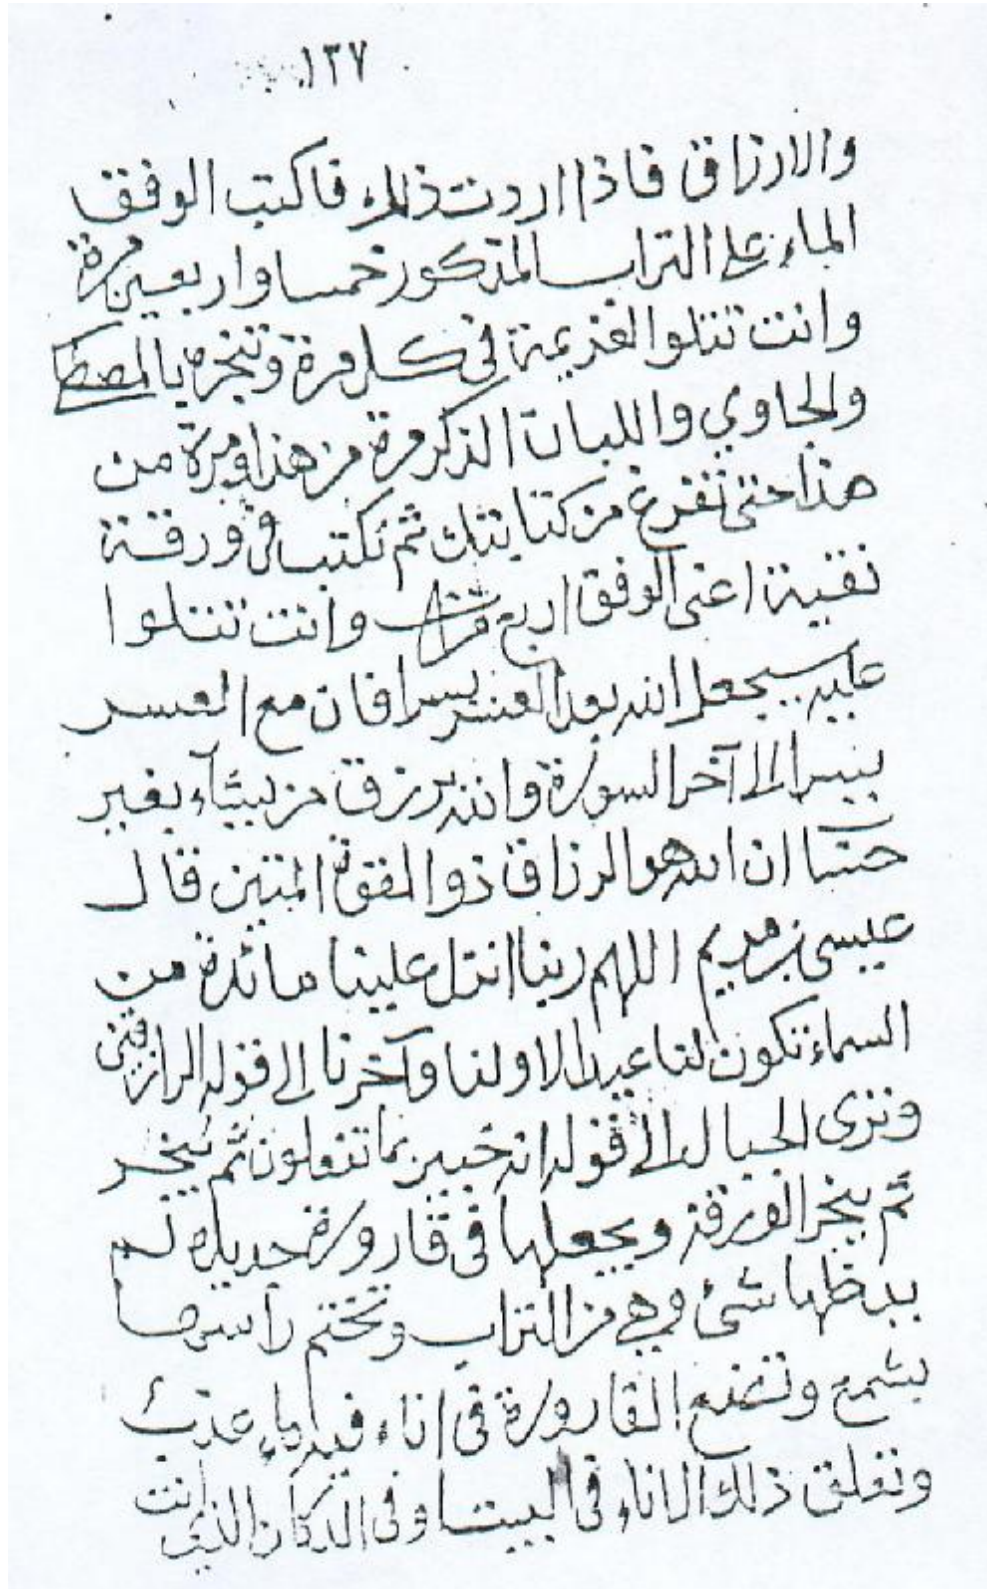 ١٣٧
والارزاق فاذا اردت ذلك فاكتب الوفق
الماء على التراب المذكور خمسا واربعين مرة
وانت تتلوا العزيمة في كل مرة وتبخره بالمصطكا
والجاوي واللبان الذكر مرة من هذا ومرة من
هذا حتى تفرغ من كتابتك ثم تكتب في ورقة
نقية اعنى الوفق اربع مرات وانت تتلوا
عليه سيجعل الله بعد العسر يسرا فان مع العسر
يسرا الى آخر السورة والله يرزق من يشآء بغير
حساب ان الله هو الرزاق ذوالقوة المتين قال
عيسى بن مريم اللهم ربنا انزل علينا مائدة من
السماء تكون لنا عيدا لاولنا وآخرنا الى قوله الرازقين
وترى الجبال الى قوله انه خبير بما تفعلون ثم يبخر
ثم يبخر الورقة ويجعلها في قارورة جديدة لم
يدخلها شئ وهي من التراب وتختم رأسها
بشمع وتضع القارورة في اناء فيه ماء عذب
وتعلق ذلك الاناء في البيت او في الدكان الذي انت